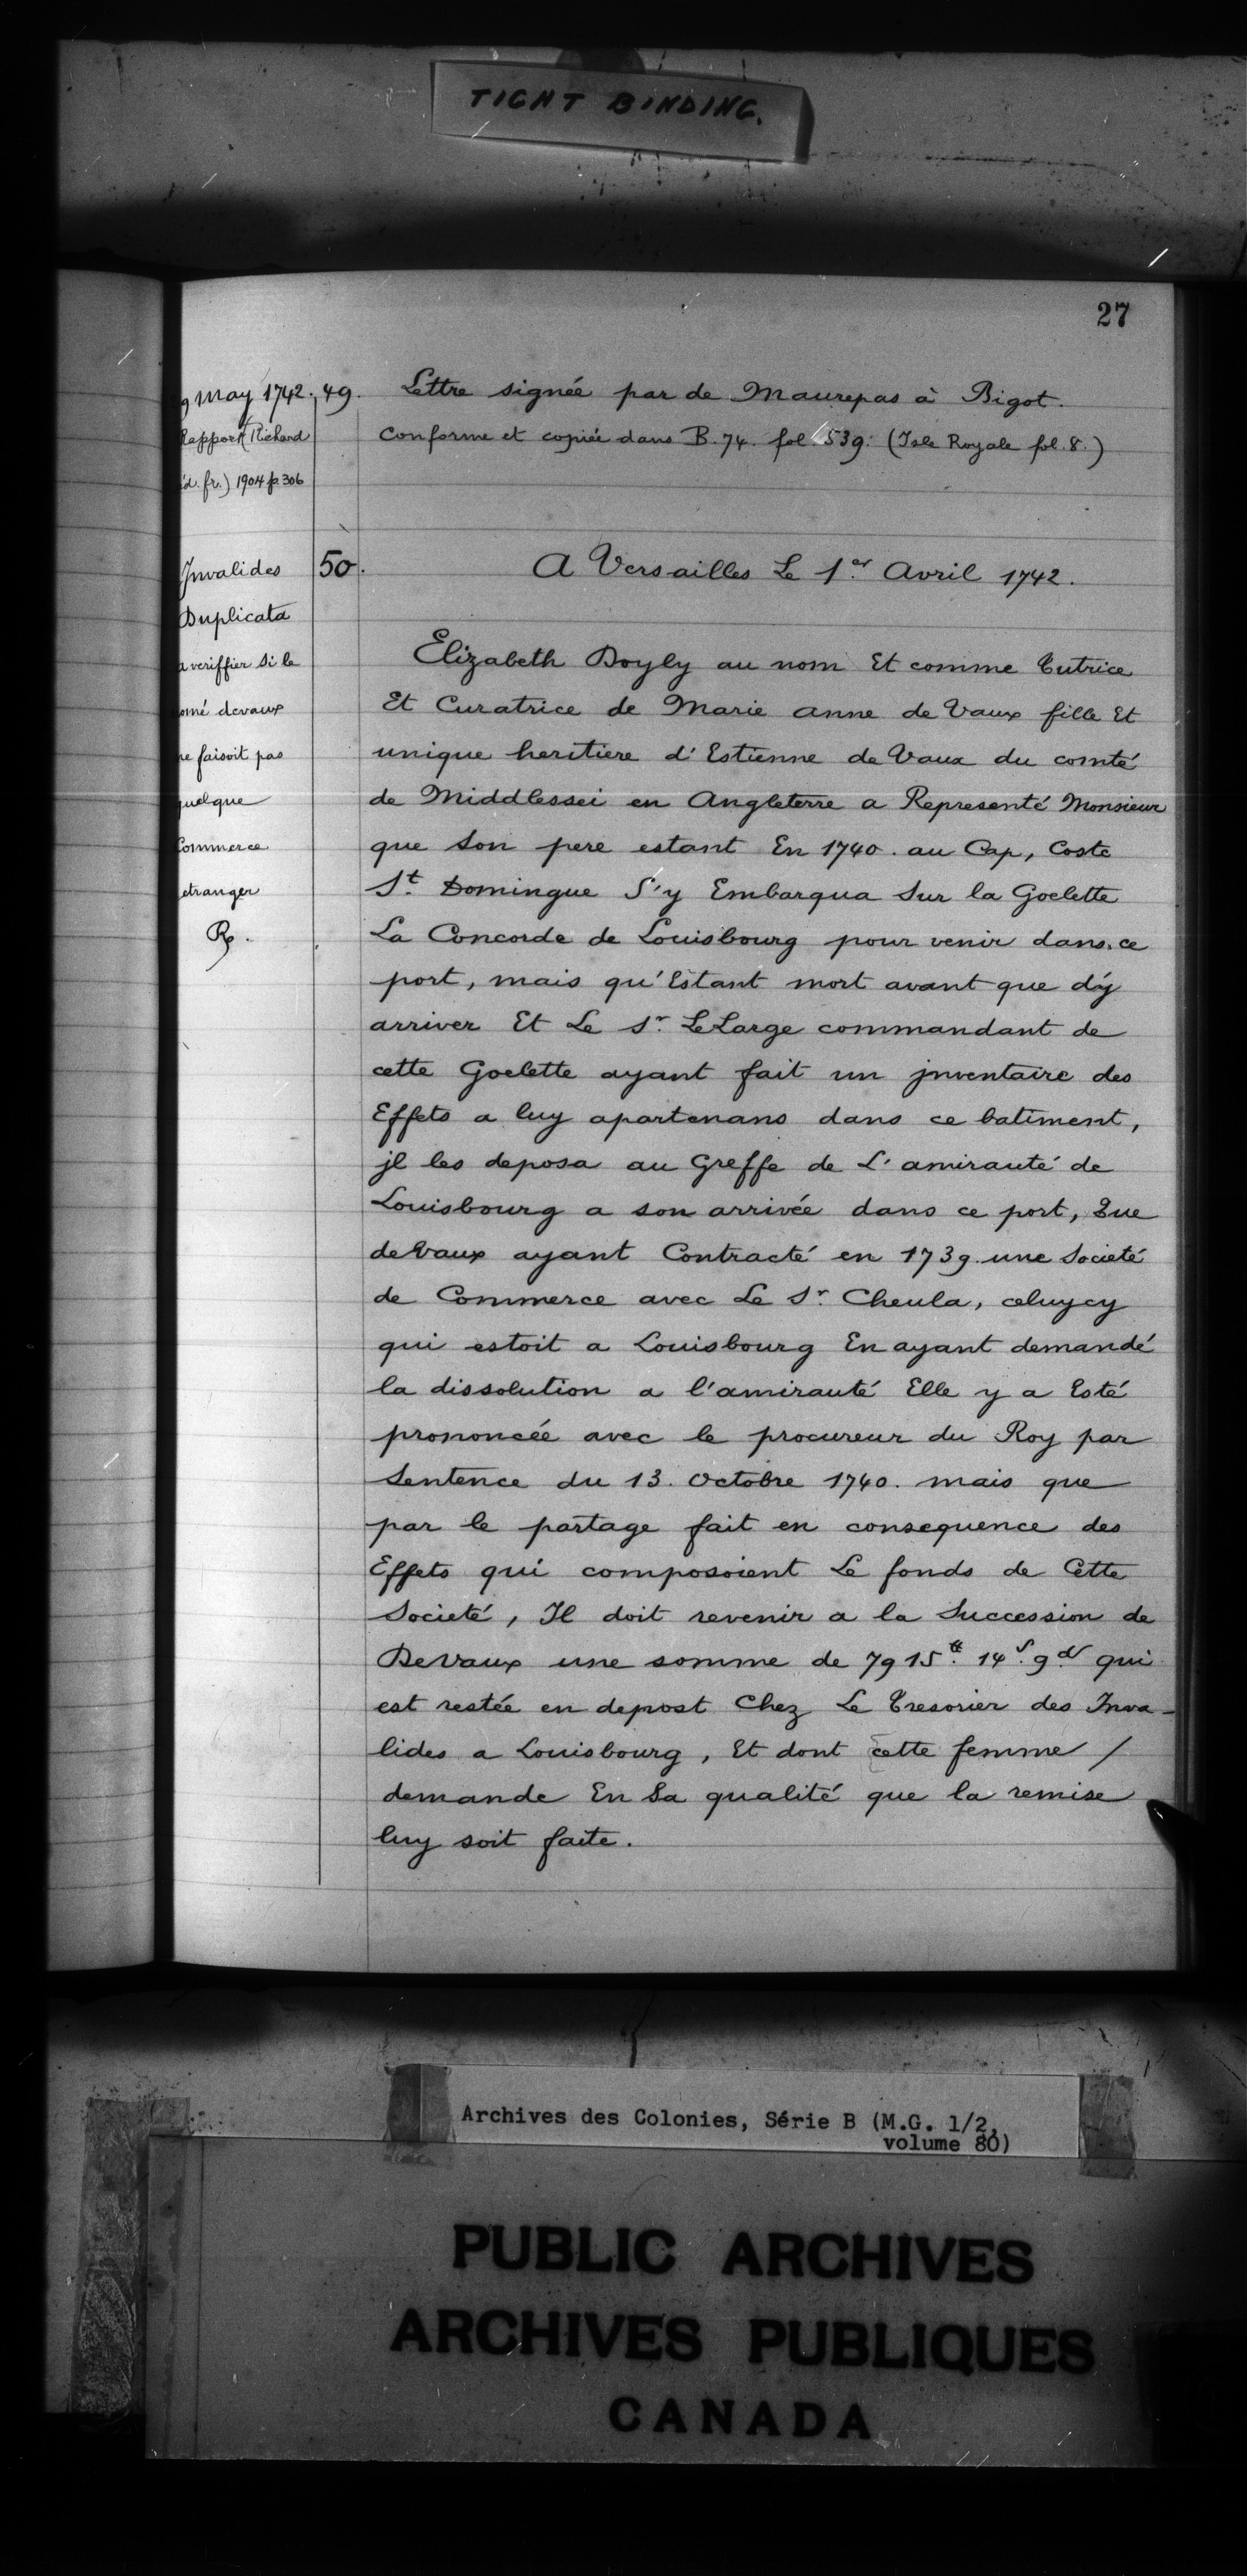 TIGHT BINDING.
27
9 May 1742. 49. Lettre signée par de Maurepas à Bigot.
Rapport (Richard conforme et copiée dans B. 74. fol. 539. (Isle Royale fol. 8.)
éd. fr.) 1904 p. 306
Invalides 50. A Versailles Le 1.er Avril 1742.
Duplicata
a veriffier si le
nomé devaux
ne faisoit pas
quelque
Commerce
etranger
Elizabeth Doyly au nom Et comme Tutrice
Et Curatrice de Marie anne de Vaux fille Et
unique heritiere d'Estienne de Vaux du comté
de Middlessei en Angleterre a Representé Monsieur
que Son pere estant En 1740. au Cap, Coste
St. Domingue S'y Embarqua Sur la Goelette
La Concorde de Louisbourg pour venir dans ce
port, mais qu'Estant mort avant que d'y
arriver Et Le Sr. LeLarge commandant de
cette Goelette ayant fait un jnventaire des
Effets a luy apartenans dans ce batiment,
jl les deposa au Greffe de L'amirauté de
Louisbourg a son arrivée dans ce port, Que
deVaux ayant Contracté en 1739. une Societé
de Commerce avec Le Sr. Cheula, celuycy
qui estoit a Louisbourg En ayant demandé
la dissolution a l'amirauté Elle y a Esté
prononcée avec le procureur du Roy par
Sentence du 13. Octobre 1740. mais que
par le partage fait en consequence des
Effets qui composoient Le fonds de Cette
Societé, Il doit revenir a la Succession de
DeVaux une somme de 7915tt. 14s. 9d qui
est restée en depost Chez Le Tresorier des Inva-
lides a Louisbourg, Et dont cette femme /
demande En Sa qualité que la remise
luy soit faite.
Archives des Colonies, Série B (M.G. 1/2,
volume 80)
PUBLIC ARCHIVES
ARCHIVES PUBLIQUES
CANADA